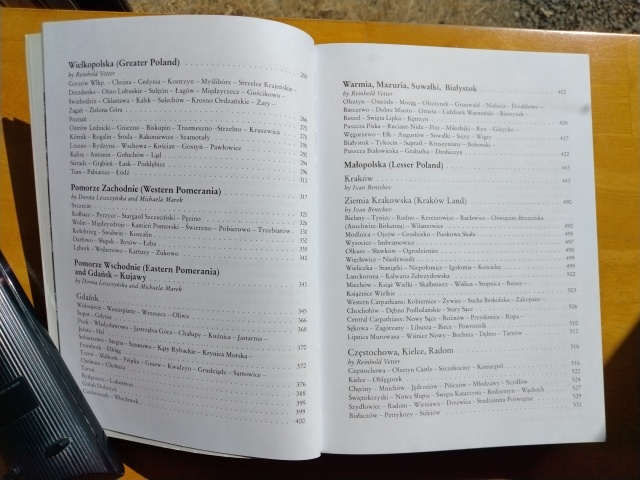 Wielkopolska (Greater Poland)
by Reinhold Vetter
Gorzów Wlkp. – Chojna – Cedynia – Kostrzyn – Myślibórz – Strzelce Krajeńskie –
Drezdenko – Ośno Lubuskie – Sulęcin – Łagów – Międzyrzecz – Gościkowo –
Świebodzin – Chlastawa – Kalsk – Sulechów – Krosno Odrzańskie – Żary –
Żagań – Zielona Góra
Poznań
Ostrów Lednicki – Gniezno – Biskupin – Trzemeszno – Strzelno – Kruszwica
Kórnik – Rogalin – Środa – Rakoniewice – Szamotuły
Leszno – Rydzyna – Wschowa – Kościan – Gostyń – Pawłowice 291
Kalisz – Antonin – Gołuchów – Ląd 294
Sieradz – Grabień – Łask – Poddębice 296
Tum – Pabianice – Łódź 311
Pomorze Zachodnie (Western Pomerania) 317
by Dorota Leszczyńska and Michaela Marek
Szczecin
Kołbacz – Pyrzyce – Stargard Szczeciński – Pęzino
Wolin – Międzyzdroje – Kamień Pomorski – Świerzno – Połczno – Trzebiatów
Kołobrzeg – Świdwin – Koszalin
Darłowo – Słupsk – Bytów – Łeba
Lębork – Wejherowo – Kartuzy – Żukowo 341
Pomorze Wschodnie (Eastern Pomerania)
and Gdańsk – Kujawy 343
by Dorota Leszczyńska and Michaela Marek
Gdańsk 345
Wisłoujście – Westerplatte – Wrzeszcz – Oliwa 366
Sopot – Gdynia 368
Puck – Władysławowo – Jastrzębia Góra – Chałupy – Kuźnica – Jastarnia –
Jurata – Hel 370
Sobieszewo – Stegna – Sztutowo – Kąty Rybackie – Krynica Morska –
Frombork – Elbląg 372
Tczew – Malbork – Pelplin – Gniew – Kwidzyn – Grudziądz – Sartowice –
Chełmno – Chełmża 376
Toruń 388
Bydgoszcz – Lubostroń 395
Golub Dobrzyń 399
Ciechocinek – Włocławek 400
Warmia, Mazuria, Suwałki, Białystok 402
by Reinhold Vetter
Olsztyn – Ostróda – Morąg – Olsztynek – Grunwald – Nidzica – Działdowo –
Barczewo – Dobre Miasto – Orneta – Lidzbark Warmiński – Bisztynek –
Reszel – Święta Lipka – Kętrzyn 406
Puszcza Piska – Ruciane-Nida – Pisz – Mikołajki – Ryn – Giżycko –
Węgorzewo – Ełk – Augustów – Suwałki – Sejny – Wigry 417
Białystok – Tykocin – Supraśl – Kruszyniany – Bohoniki
Puszcza Białowieska – Grabarka – Drohiczyn 422
Małopolska (Lesser Poland) 443
Kraków 443
by Ivan Bentchev
Ziemia Krakowska (Kraków Land) 490
by Ivan Bentchev
Bielany – Tyniec – Rudno – Krzeszowice – Racławice – Oświęcim-Brzezinka
(Auschwitz-Birkenau) – Wilamowice 490
Modlnica – Ojców – Grodzisko – Pieskowa Skała 495
Wysocice – Imbramowice 497
Olkusz – Sławków – Ogrodzieniec 498
Więcławice – Niedźwiedź 499
Wieliczka – Staniątki – Niepołomice – Igołomia – Kościelec 499
Lanckorona – Kalwaria Zebrzydowska 502
Miechów – Książ Wielki – Skalbmierz – Wiślica – Stopnica – Bejsce –
Książnice Wielkie
Western Carpathians: Kobiernice – Żywiec – Sucha Beskidzka – Zakopane –
Chochołów – Dębno Podhalańskie – Stary Sącz 506
Central Carpathians: Nowy Sącz – Rożnów – Przydonica – Ropa –
Sękowa – Zagórzany – Libusza – Biecz – Powroźnik 510
Lipnica Murowana – Wiśnicz Nowy – Bochnia – Dębno – Tarnów 512
Częstochowa, Kielce, Radom 516
by Reinhold Vetter
Częstochowa – Olsztyn Castle – Szczekociny – Koniecpol 516
Kielce – Oblęgorek 522
Chęciny – Mnichów – Jędrzejów – Pińczów – Młodzawy – Szydłów 524
Świętokrzyski – Nowa Słupia – Święta Katarzyna – Bodzentyn – Wąchock 527
Szydłowiec – Radom – Wieniawa – Drzewica – Studzianna-Poświętne 529
Białaczów – Petrykozy – Sulejów 531